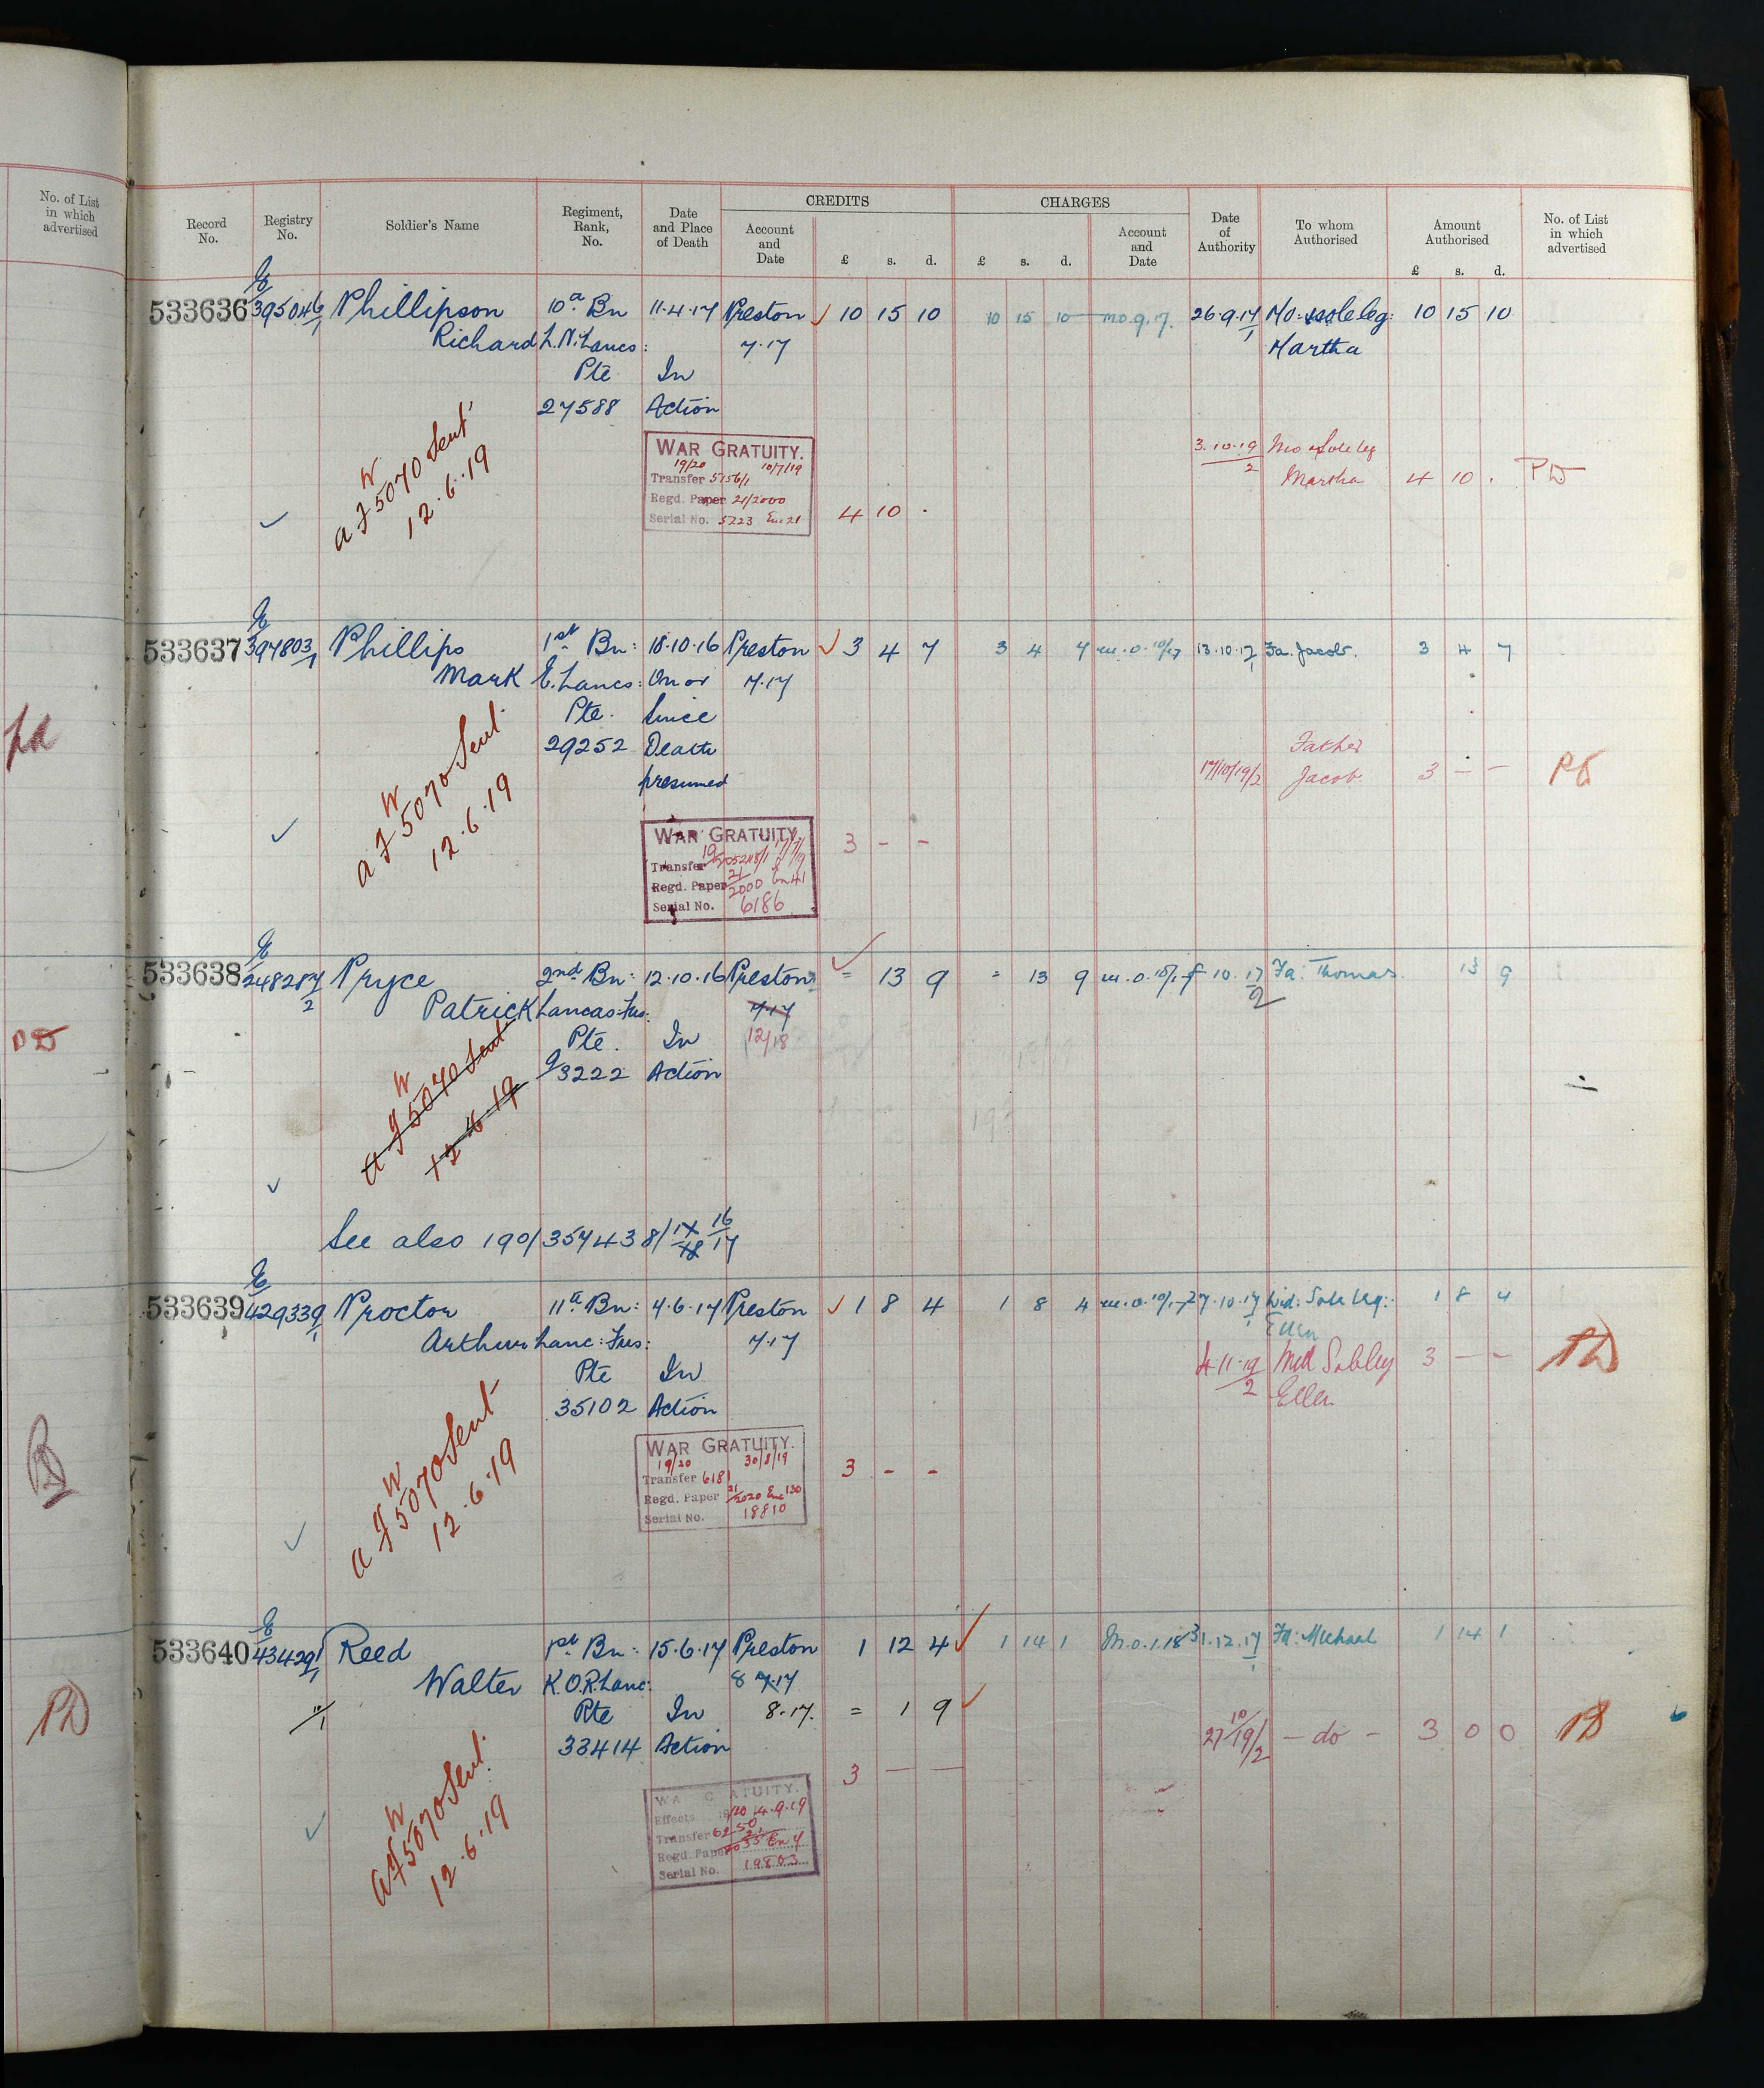 No. of List
in which
advertised
Record No.
Registry No.
Soldier's Name
Regiment, Rank, No.
Date and Place of Death
CREDITS
Account and Date
£ s. d.
CHARGES
£ s. d.
Account and Date
Date of Authority
To whom Authorised
Amount Authorised
£ s. d.
No. of List in which advertised
533636 E/395046/1 Phillipson 10th Bn 11.4.17 Preston 10 15 10 10 15 10 m.o.9.17. 26.9.17/1 Mo. sole leg: 10 15 10
Richard L.N.Lancs: 7.17 Martha
Pte In
27588 Action
W
a f 5070 Sent
12.6.19
WAR GRATUITY.
19/20 10/7/19
Transfer 5156/1
Regd. Paper 21/2000
Serial No. 5223 Enc 21
4 10 .
3.10.19/2 Mo Sole leg
Martha 4 10 . PD
533637 E/397803/1 Phillips 1st Bn: 18.10.16 Preston 3 4 7 3 4 7 m.o.10/17 13.10.17/1 Fa. Jacob. 3 4 7
Mark E.Lancs: On or 7.17
Pte. Since
29252 Death
presumed
Father
17/10/19/2 Jacob. 3 — — PD
W
a f 5070 Sent.
12.6.19
WAR GRATUITY.
Transfer
Regd. Paper 21/2000 En 41
Serial No. 6186
3 - -
533638 E/248287/2 Pryce 2nd Bn: 12.10.16 Preston = 13 9 = 13 9 m.o.10/17 10.17/2 Fa: Thomas. 13 9
Patrick Lancas:Fus: 7.17
Pte. In 12/18
9/3222 Action
W
a f 5070 Sent
12 6 19
See also 190/357438/ 16/17
533639 E/429339/1 Proctor 11th Bn: 4.6.17 Preston 1 8 4 1 8 4 m.o.10/17 27.10.17/1 Wid: Sole Leg: 1 8 4
Ellen
Arthur Lanc:Fus: 7.17
Pte In
35102 Action
4.11.19/2 Wid Sol leg 3 — — PD
Ellen
W
a f 5070 Sent
12.6.19
WAR GRATUITY.
19/20 30/8/19
Transfer 6181
Regd. Paper 21/2020 Enc 130
Serial No. 18810
3 - -
533640 E/434291/1 Reed 1st Bn: 15.6.17 Preston 1 12 4 1 14 1 M.o.1.18 31.12.17/1 Fa: Michael 1 14 1
Walter K.O.R.Lanc: 8 7.17
Pte In 8.17. = 1 9
33414 Action
27 10/19/2 — do — 3 0 0 PD
3 — —
W
a f 5070 Sent.
12.6.19
WA G ATUITY.
Effects 19/20 4.9.19
Transfer 6250
Regd. Paper 21/2035 En 4
Serial No. 19803
PD